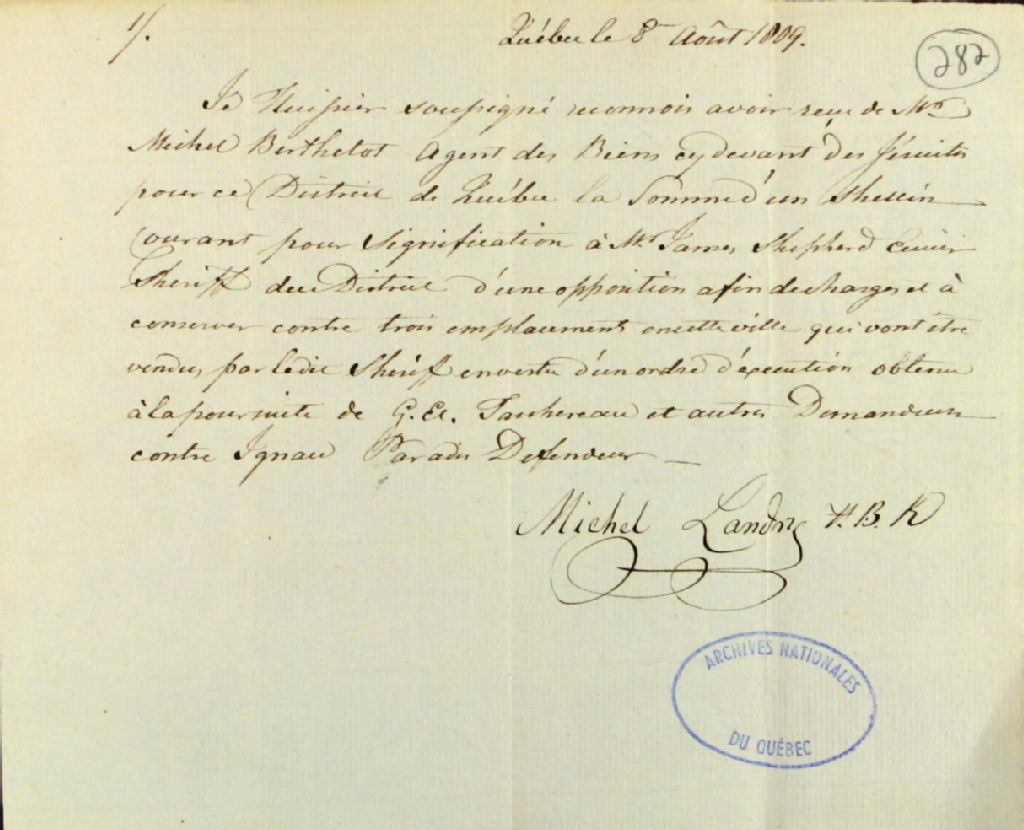 1/.
Québec le 8 Août 1809.
282
Je Huissier soussigné reconnois avoir reçu de Mr
Michel Berthelot Agent des Biens cydevant des Jésuites
pour ce District de Québec la Somme d'un Shellin
Courant pour Signification à Mr James Shepherd Ecuier
Sheriff du District d'une opposition afin de charges et à
conserver contre trois emplacements en cette ville qui vont être
vendus par le dit Shériff en vertu d'un ordre d'éxecution obtenu
à la poursuite de G. El. Taschereau et autres Demandeurs
contre Ignace Paradis Defendeur —
Michel Landry H.B.R
ARCHIVES NATIONALES
DU QUÉBEC